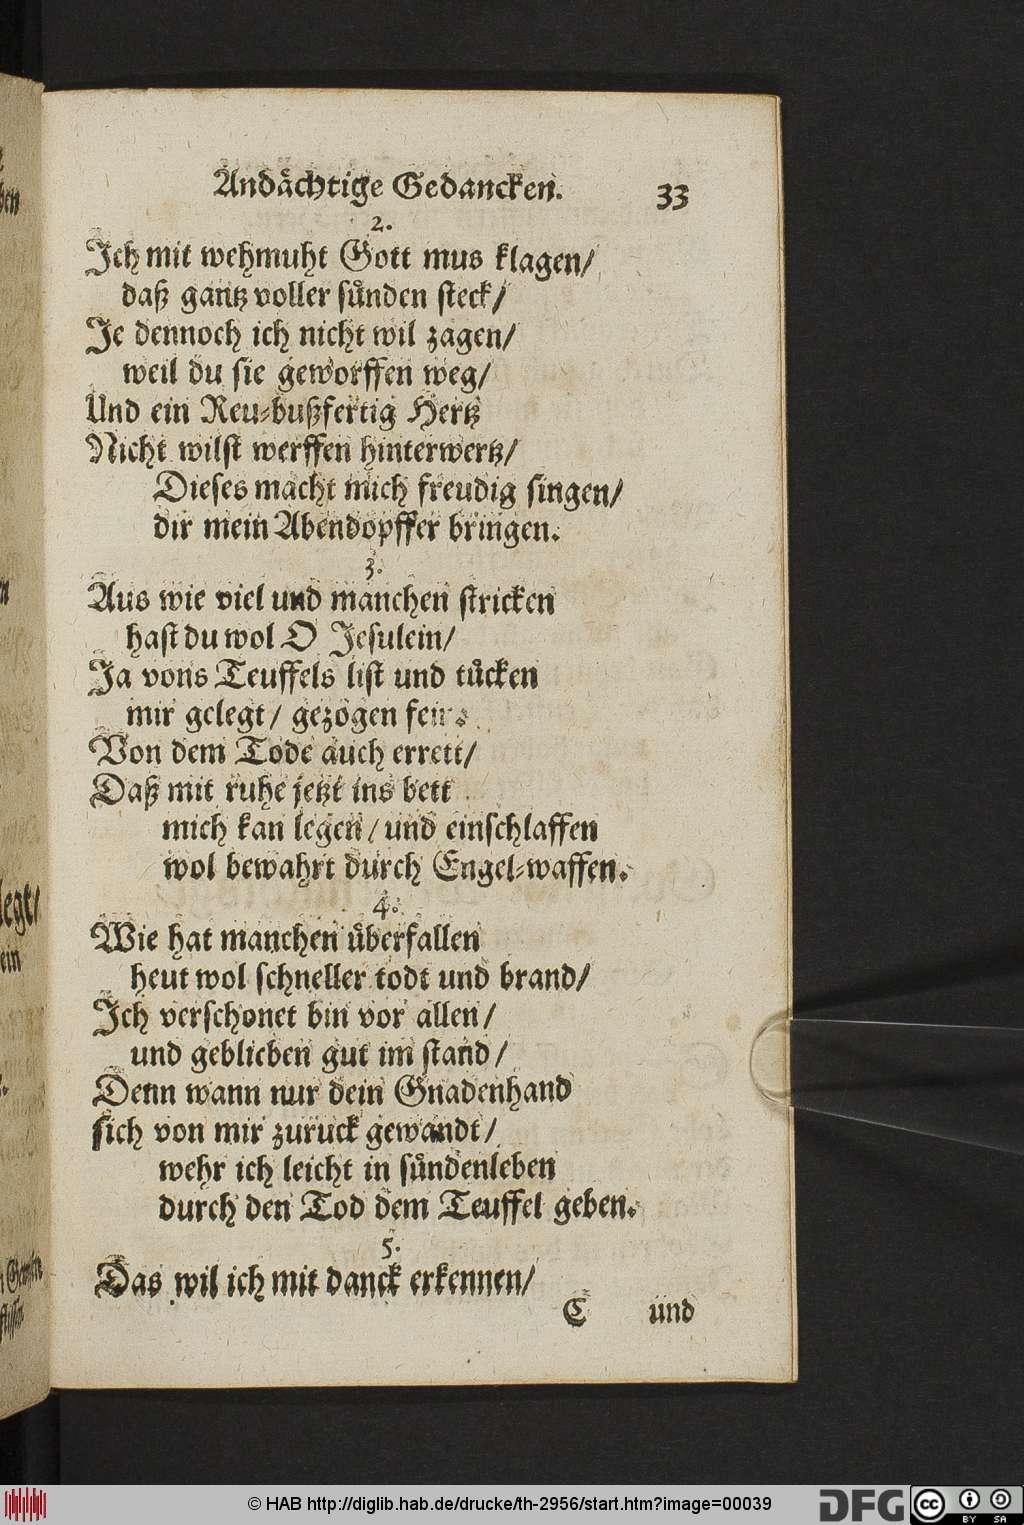 Andächtige Gedancken. 33
2.
Ich mit wehmuht Gott mus klagen/
daß gantz voller sünden steck/
Je dennoch ich nicht wil zagen/
weil du sie geworffen weg/
Und ein Reu-bußfertig Hertz
Nicht wilst werffen hinterwertz/
Dieses macht mich freudig singen/
dir mein Abendopffer bringen.
3.
Aus wie viel und manchen stricken
hast du wol O Jesulein/
Ja vons Teuffels list und tücken
mir gelegt/ gezogen fein.
Von dem Tode auch errett/
Daß mit ruhe jetzt ins bett
mich kan legen/ und einschlaffen
wol bewahrt durch Engel-waffen.
4.
Wie hat manchen überfallen
heut wol schneller todt und brand/
Ich verschonet bin vor allen/
und geblieben gut im stand/
Denn wann nur dein Gnadenhand
sich von mir zuruck gewandt/
wehr ich leicht in sündenleben
durch den Tod dem Teuffel geben.
5.
Das wil ich mit danck erkennen/
C und
© HAB http://diglib.hab.de/drucke/th-2956/start.htm?image=00039
DFG
cc BY SA